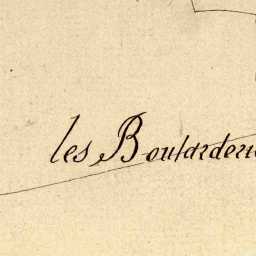 les Boutarderie